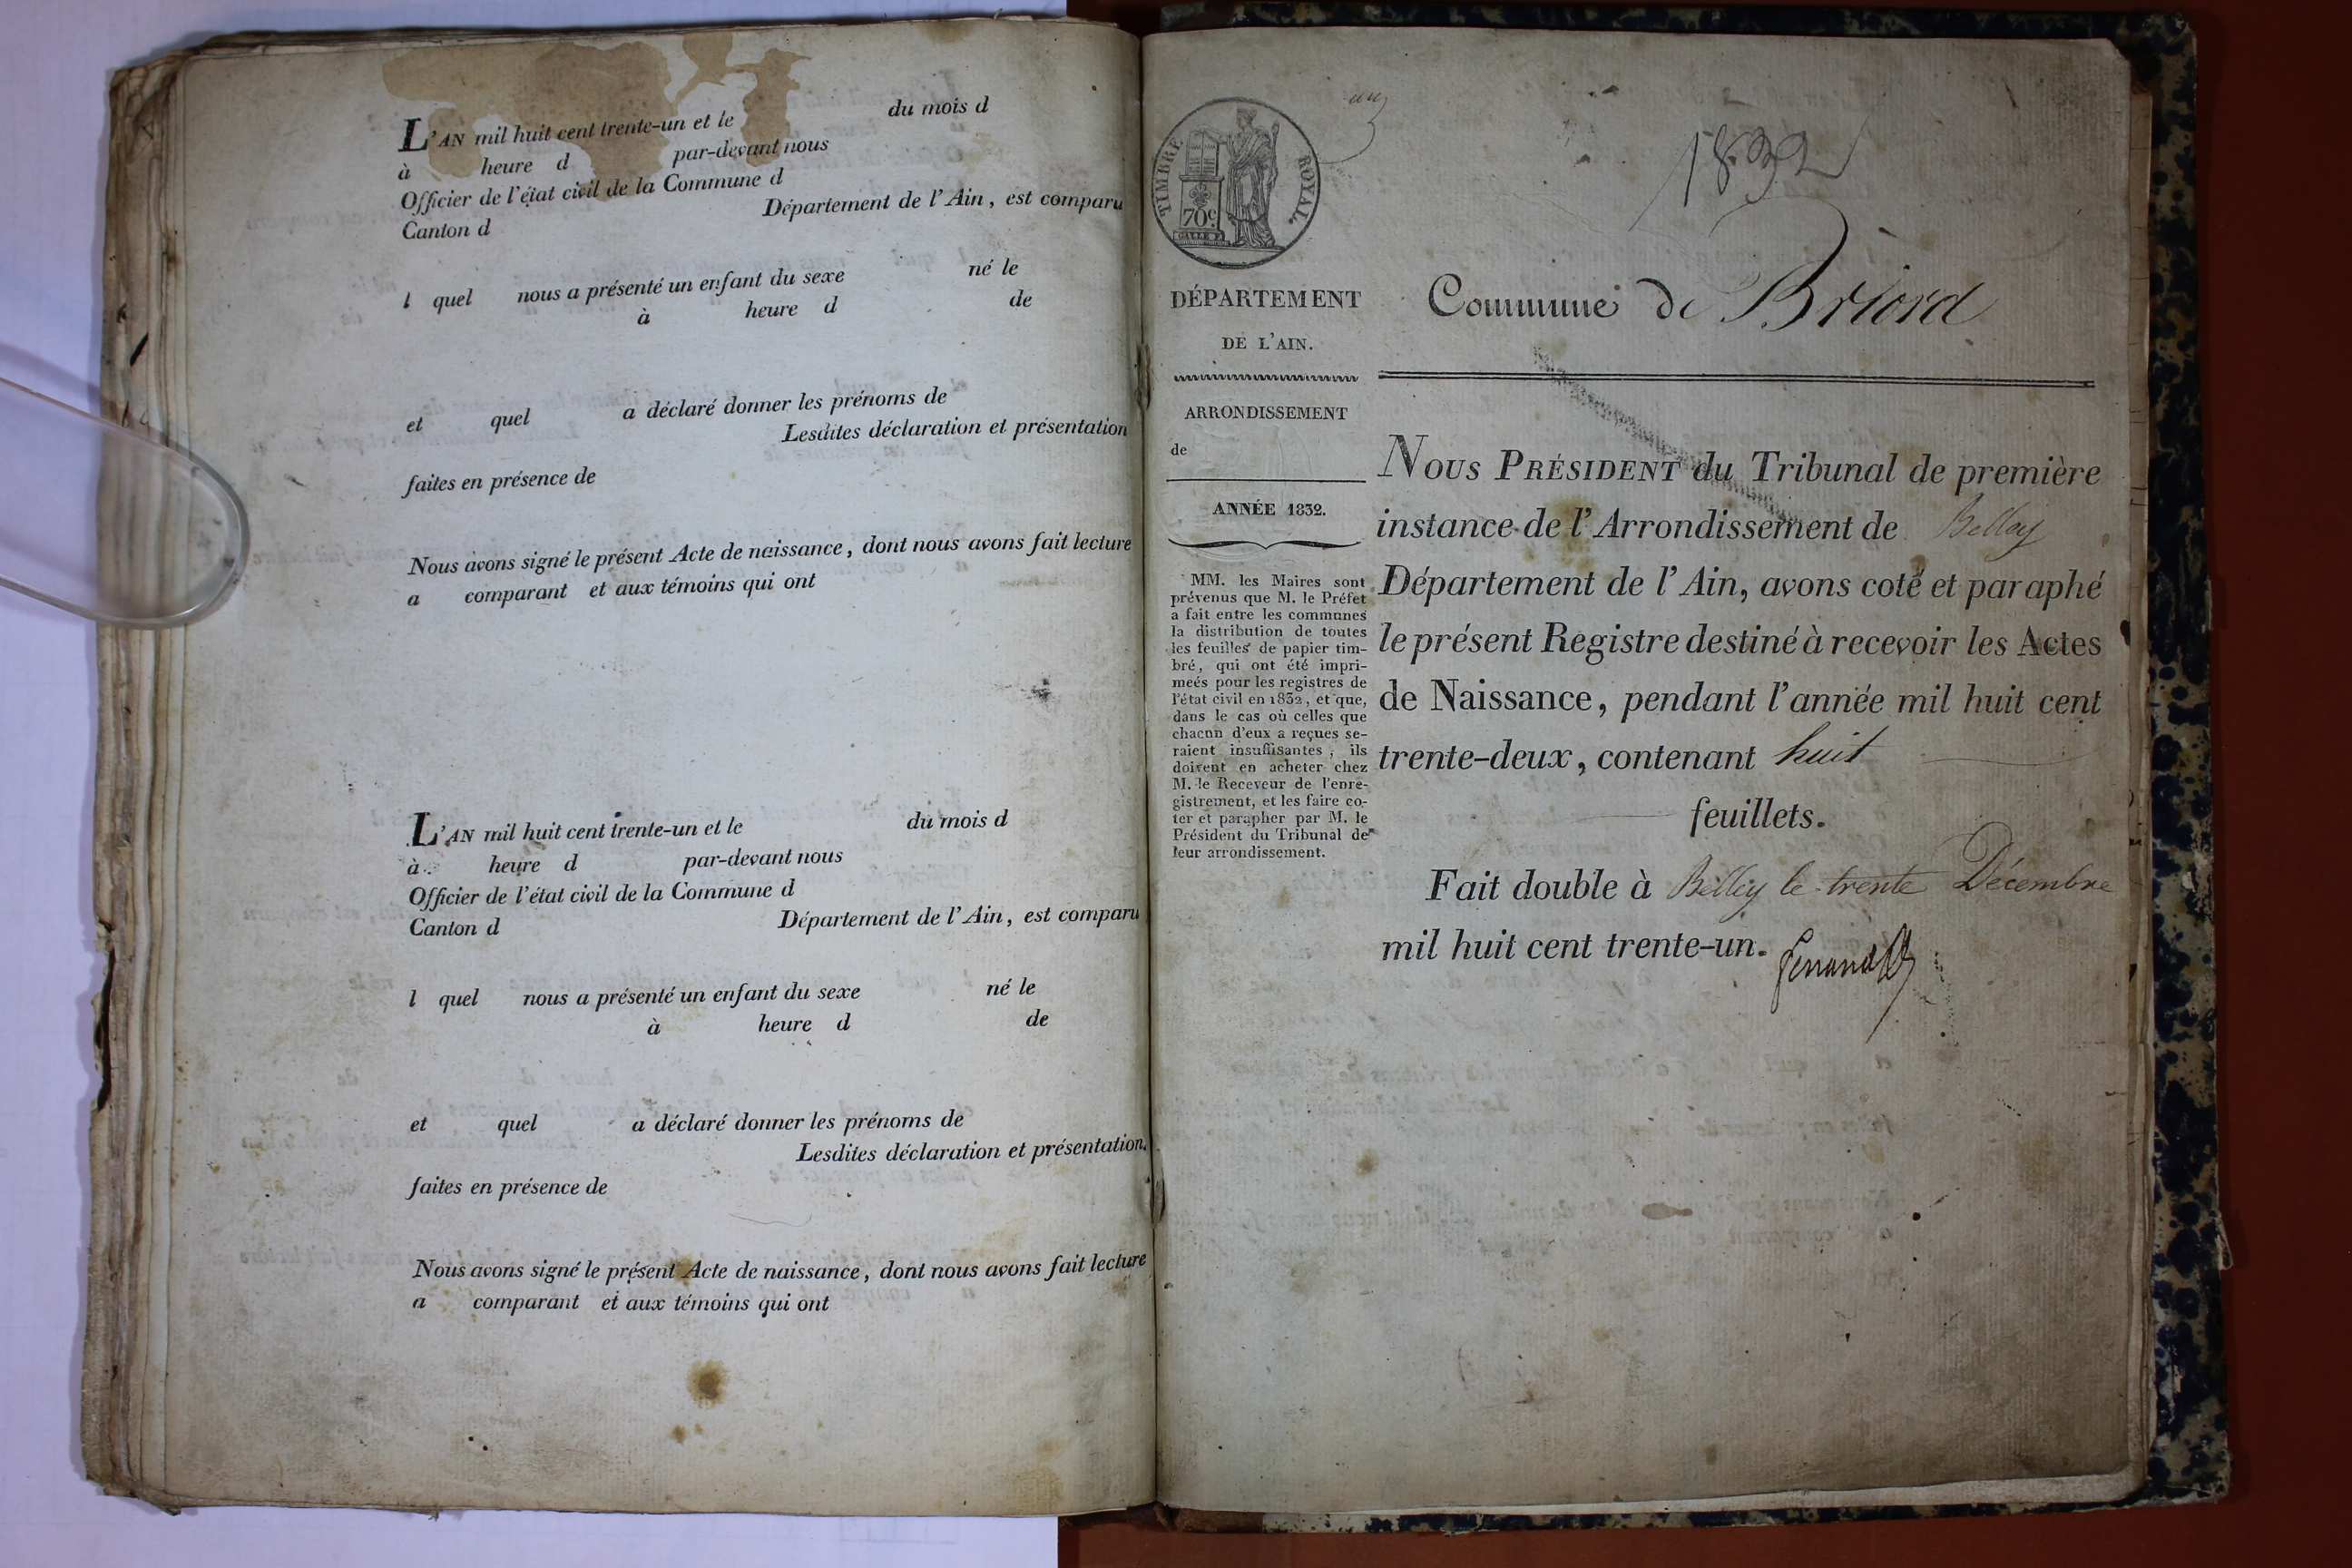 L'AN mil huit cent trente-un et le du mois d
à heure d par-devant nous
Officier de l'état civil de la Commune d
Canton d Département de l'Ain, est comparu
l quel nous a présenté un enfant du sexe né le
à heure d de
et quel a déclaré donner les prénoms de
Lesdites déclaration et présentation
faites en présence de
Nous avons signé le présent Acte de naissance, dont nous avons fait lecture
a comparant et aux témoins qui ont
L'AN mil huit cent trente-un et le du mois d
à heure d par-devant nous
Officier de l'état civil de la Commune d
Canton d Département de l'Ain, est comparu
l quel nous a présenté un enfant du sexe né le
à heure d de
et quel a déclaré donner les prénoms de
Lesdites déclaration et présentation
faites en présence de
Nous avons signé le présent Acte de naissance, dont nous avons fait lecture
a comparant et aux témoins qui ont
TIMBRE ROYAL.
70c.
DÉPARTEMENT
DE L'AIN.
ARRONDISSEMENT
de
ANNÉE 1832.
MM. les Maires sont
prévenus que M. le Préfet
a fait entre les communes
la distribution de toutes
les feuilles de papier tim-
bré, qui ont été impri-
meés pour les registres de
l'état civil en 1832, et que,
dans le cas où celles que
chacun d'eux a reçues se-
raient insuffisantes, ils
doivent en acheter chez
M. le Receveur de l'enre-
gistrement, et les faire co-
ter et parapher par M. le
Président du Tribunal de
leur arrondissement.
1832
Commune de Briord
NOUS PRÉSIDENT du Tribunal de première
instance de l'Arrondissement de Belley
Département de l'Ain, avons coté et paraphé
le présent Registre destiné à recevoir les Actes
de Naissance, pendant l'année mil huit cent
trente-deux, contenant huit
feuillets.
Fait double à Belley le trente Décembre
mil huit cent trente-un.